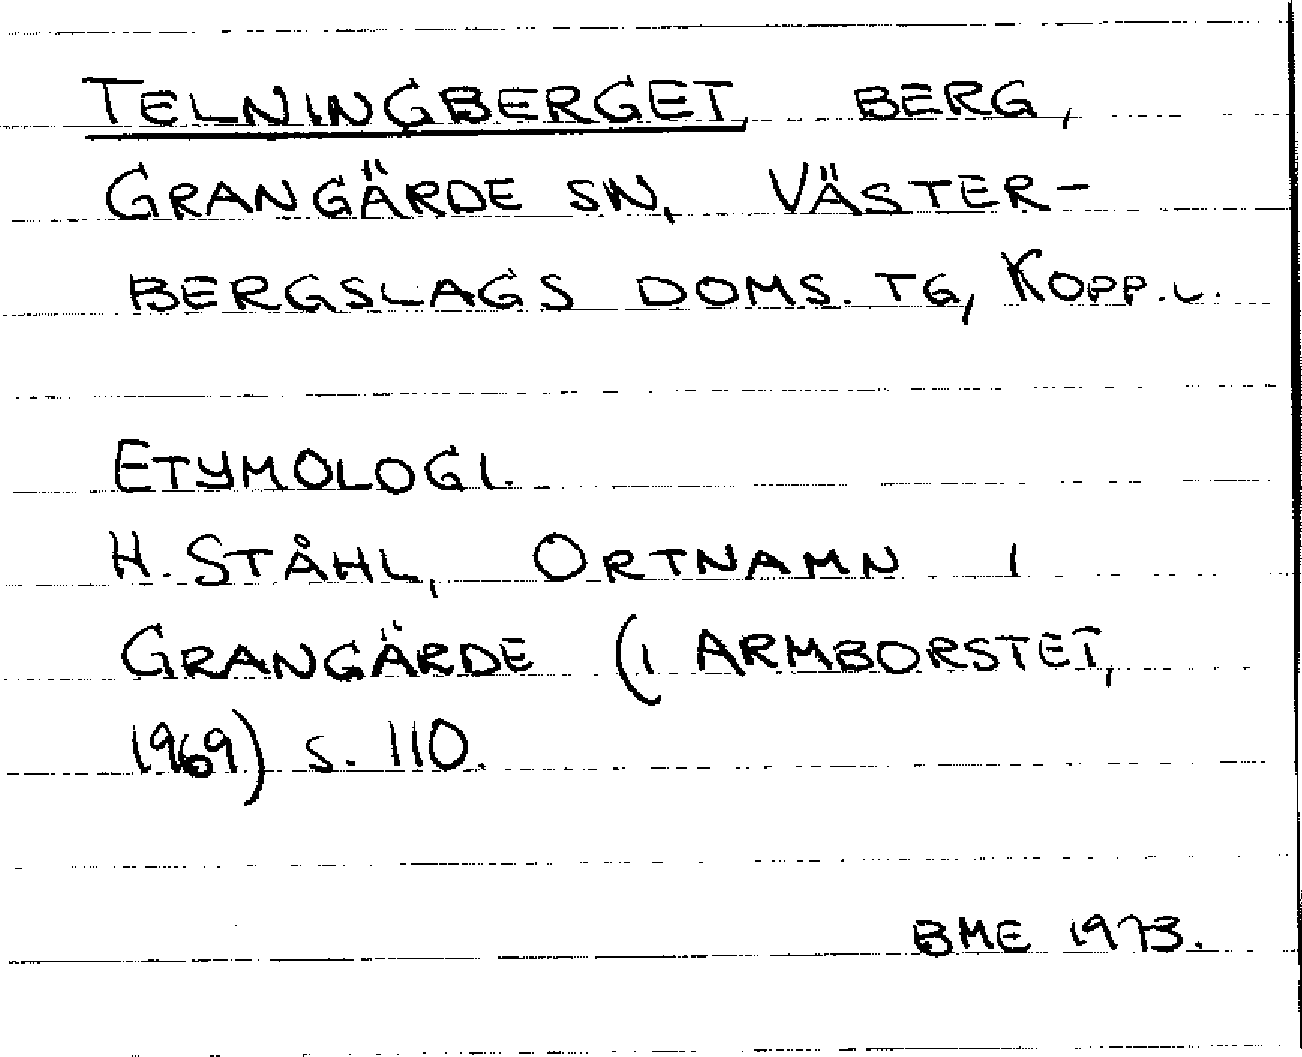 TELNINGBERGET, BERG,
GRANGÄRDE SN, VÄSTER-
BERGSLAGS DOMS. TG, KOPP.L.
ETYMOLOGI.
H. STÅHL, ORTNAMN I
GRANGÄRDE (I ARMBORSTET,
1969) S. 110.
BME 1973.